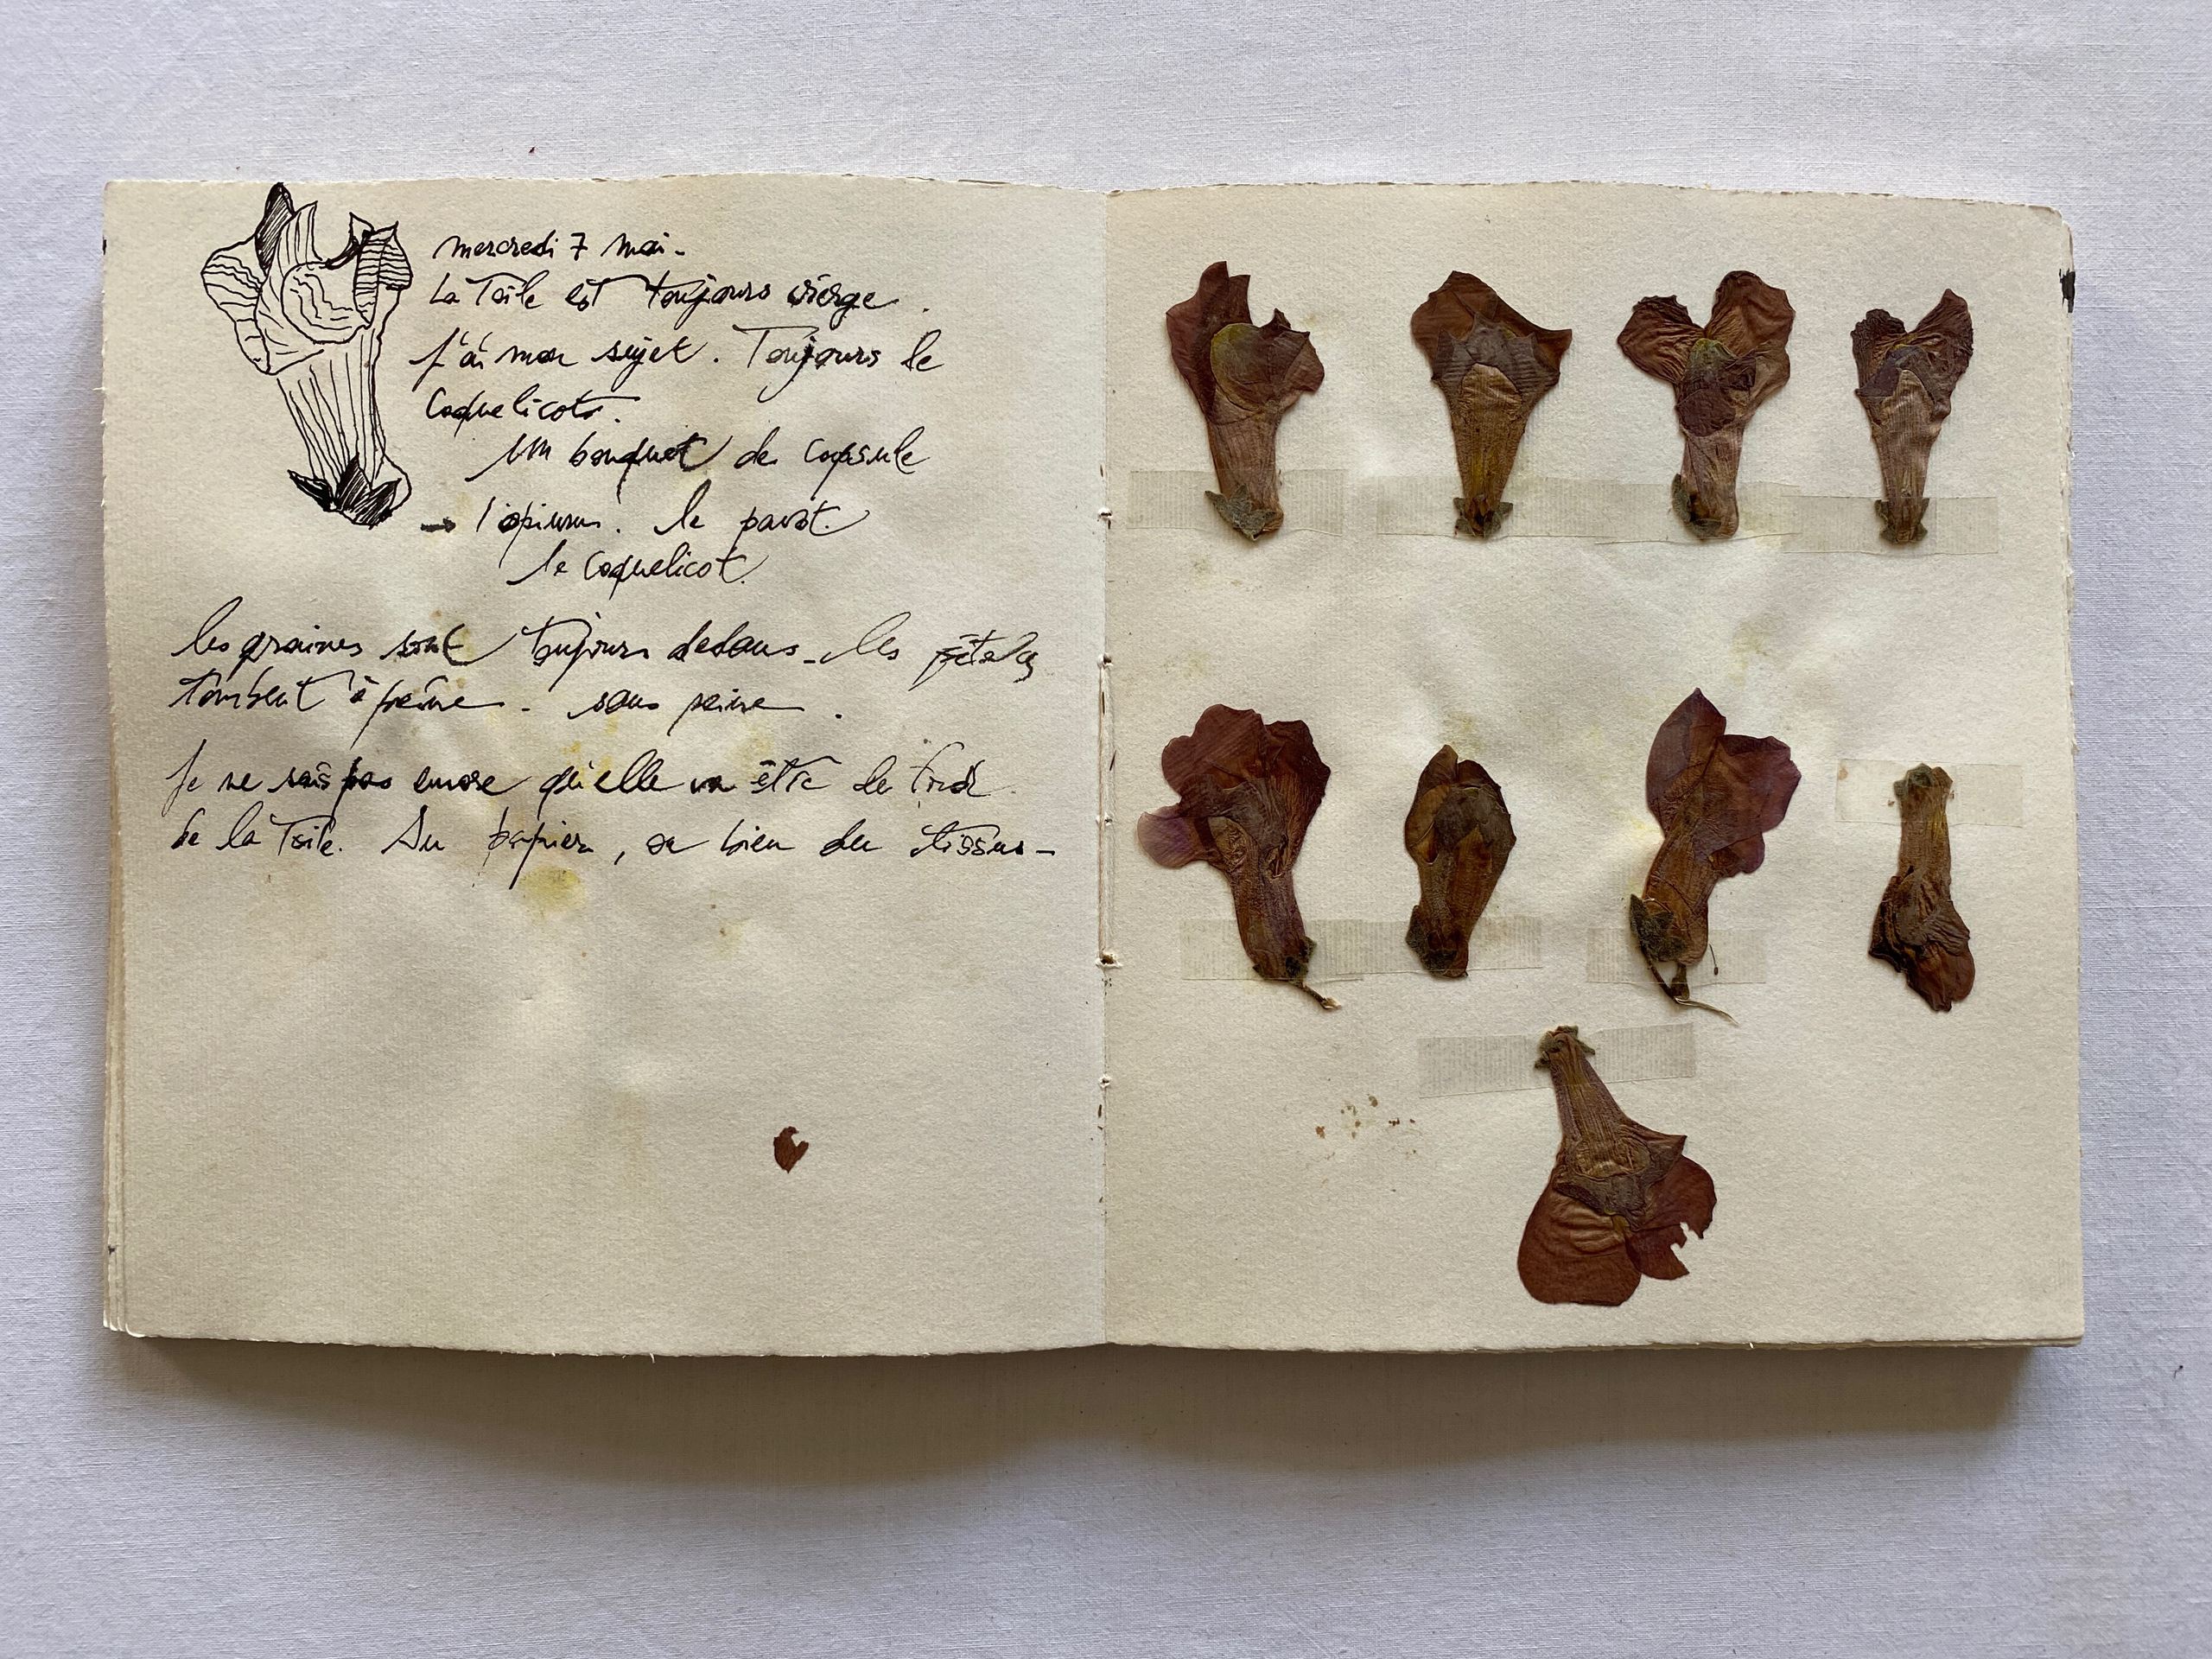 mercredi 7 mai -
La Toile est toujours vierge.
J'ai mon sujet. Toujours le
Coquelicots.
un bouquet de capsule
→ l'opium. le pavot.
le Coquelicot.
les graines sont toujours dedans - les pétales
tombent à peine - sans peine.
Je ne sais pas encore qu'elle va être le
de la Toile. Du papier, ou bien du tissus -